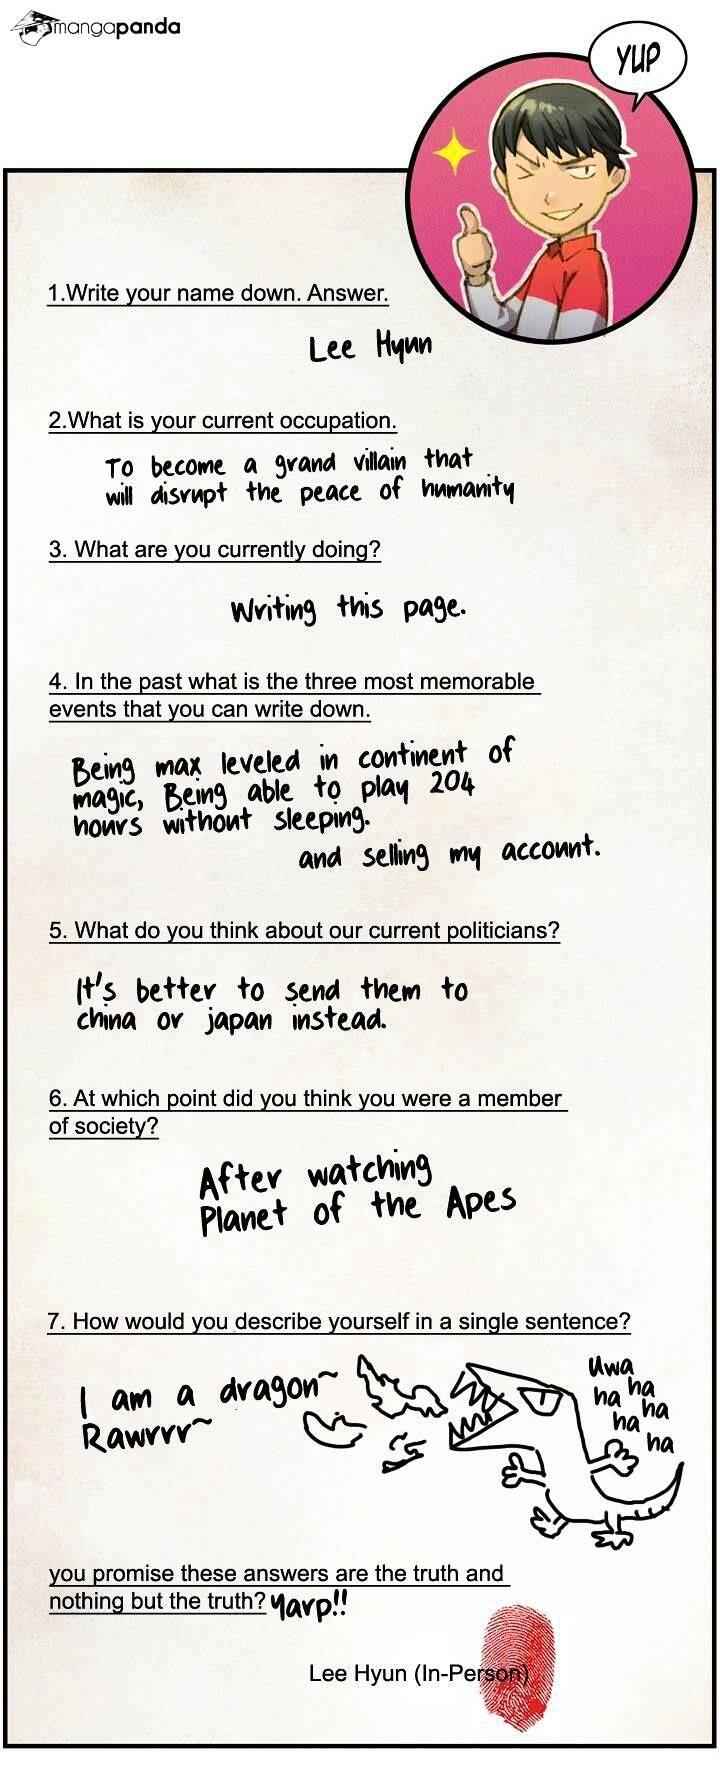 mangapanda
YUP
1.Write your name down. Answer.
Lee Hyun
2.What is your current occupation.
To become a grand villain that
will disrupt the peace of humanity
3. What are you currently doing?
Writing this page.
4. In the past what is the three most memorable
events that you can write down.
Being max leveled in continent of
magic, Being able to play 204
hours without sleeping.
and selling my account.
5. What do you think about our current politicians?
It's better to send them to
china or japan instead.
6. At which point did you think you were a member
of society?
After watching
Planet of the Apes
7. How would you describe yourself in a single sentence?
I am a dragon~
Rawrrr~
Uwa
ha ha
ha ha
ha
you promise these answers are the truth and
nothing but the truth? Yarp!!
Lee Hyun (In-Person)